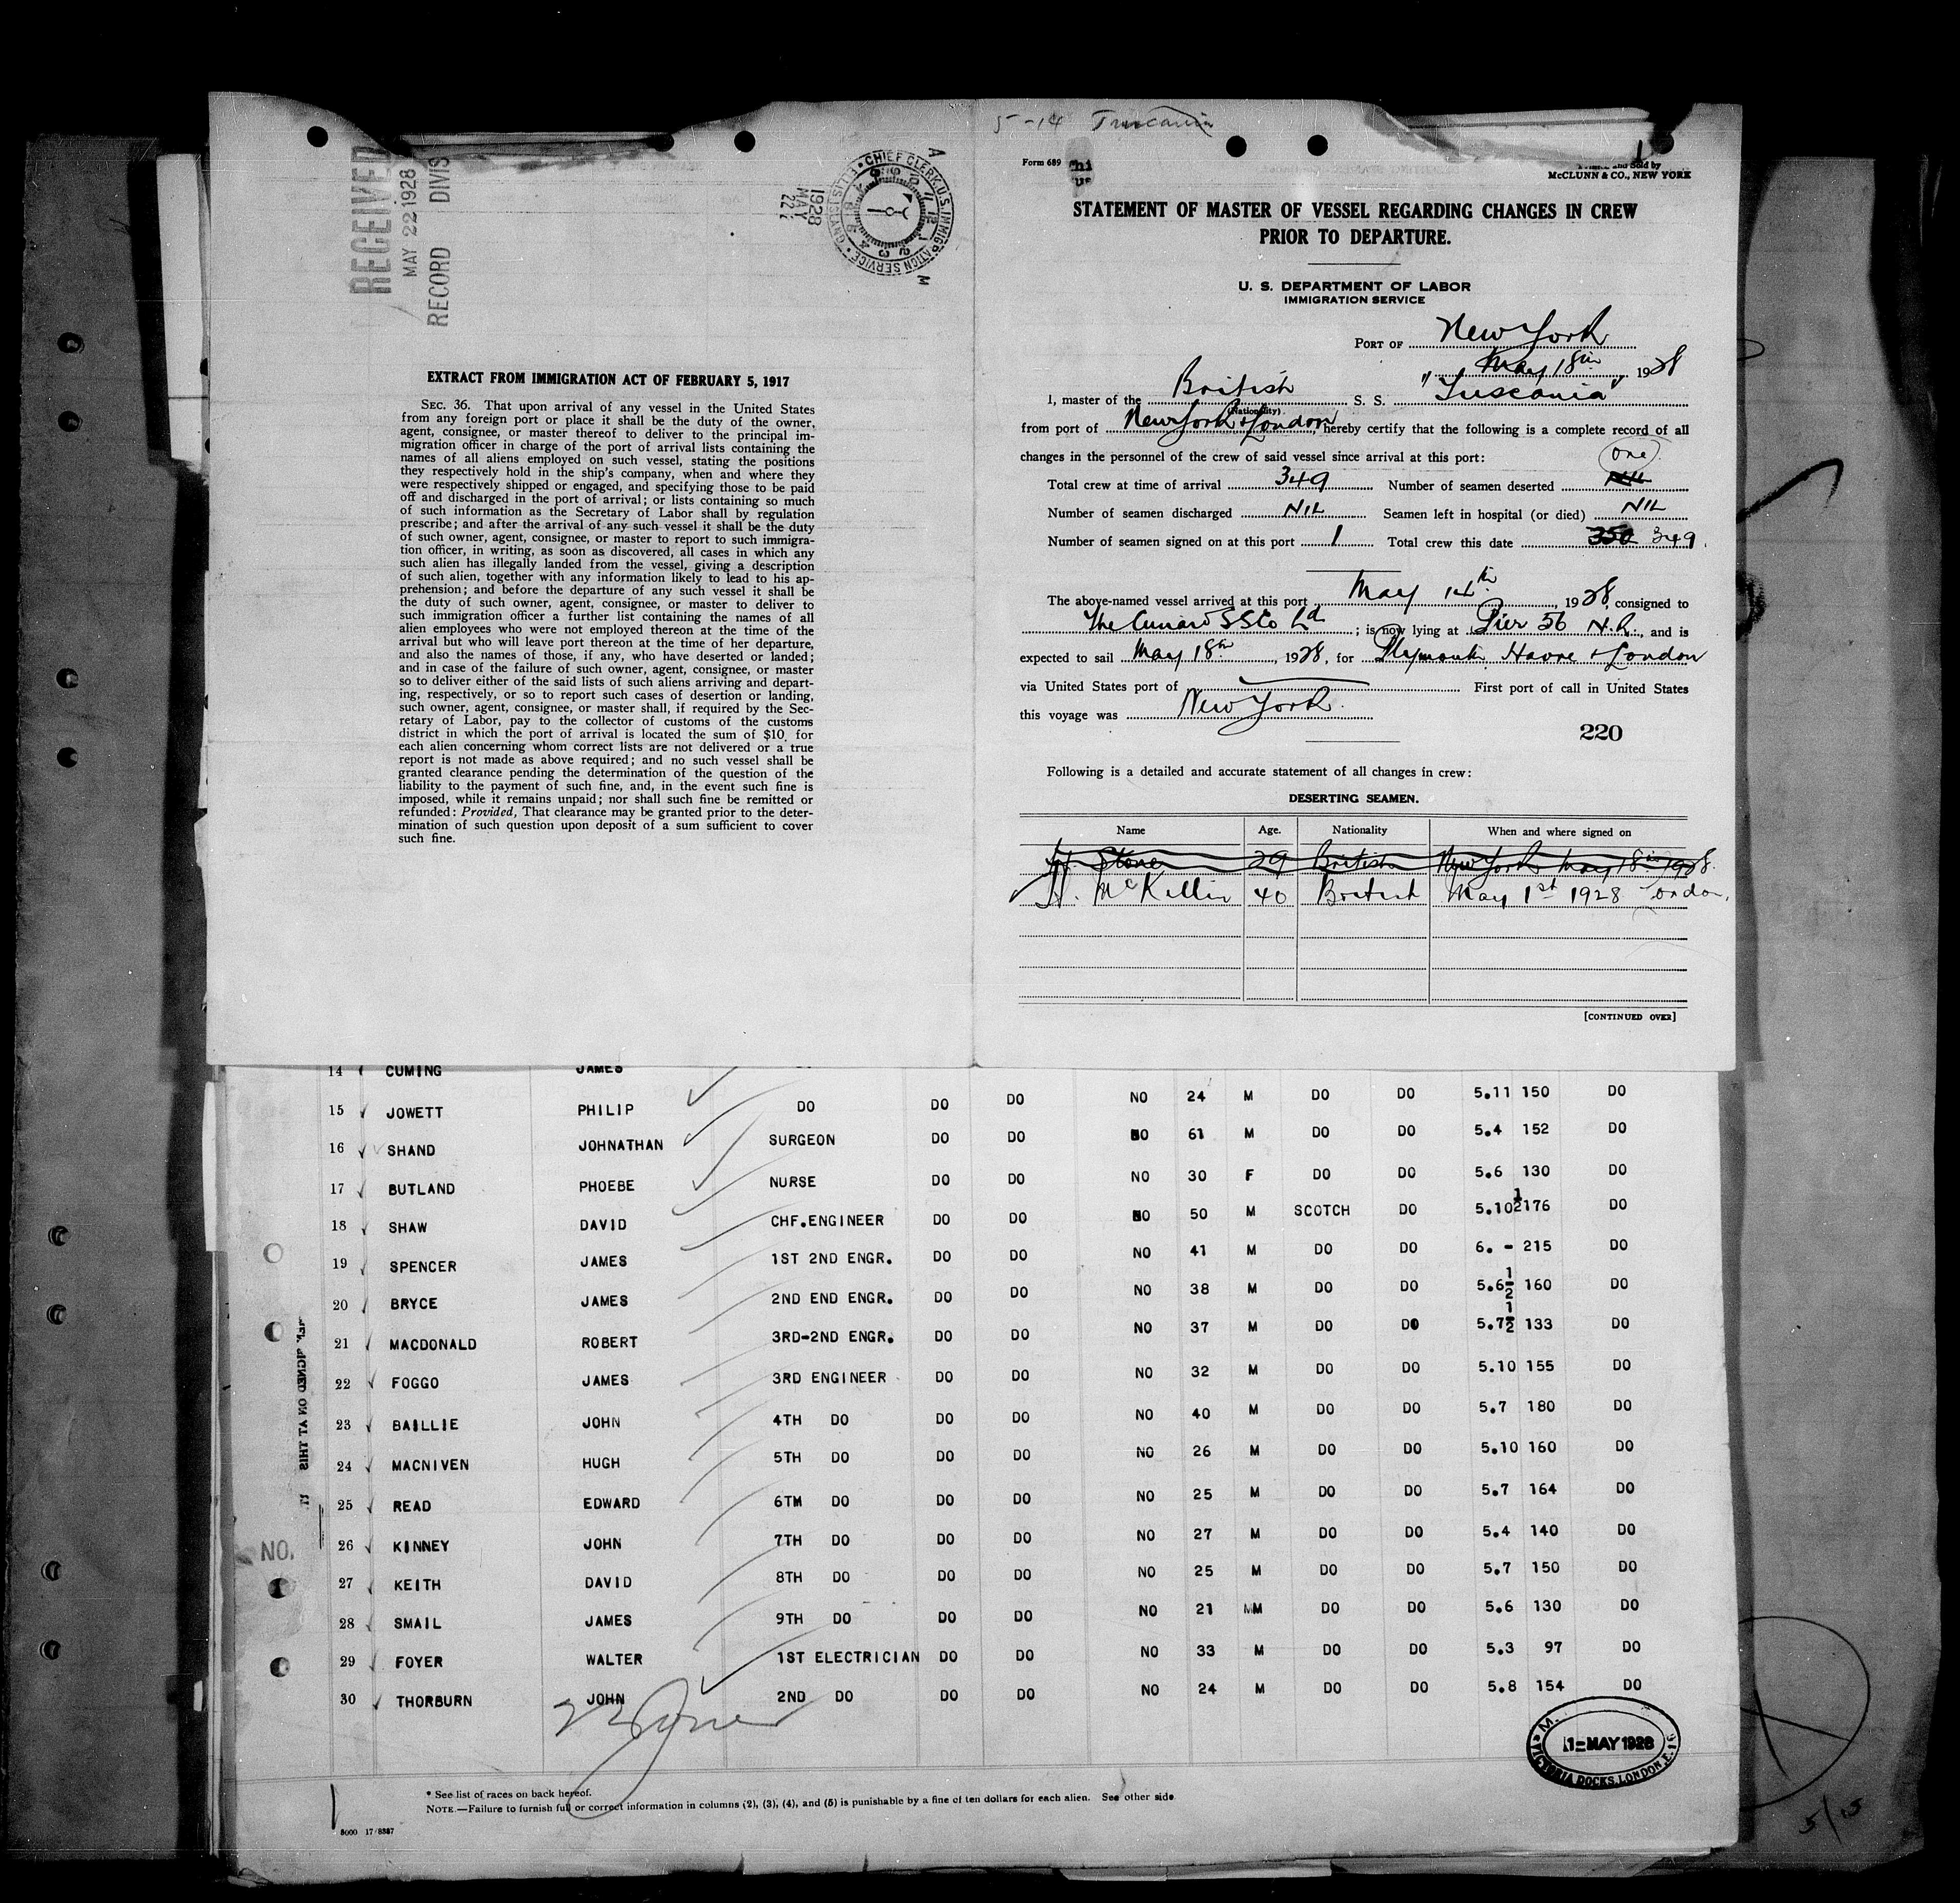 5-14 Tuscania
RECEIVED
MAY 22 1928
RECORD DIVIS
CHIEF CLERK, U.S. IMMIGRATION SERVICE • ELLIS ISLAND •
A M
1928
MAY
22
EXTRACT FROM IMMIGRATION ACT OF FEBRUARY 5, 1917
SEC. 36. That upon arrival of any vessel in the United States
from any foreign port or place it shall be the duty of the owner,
agent, consignee, or master thereof to deliver to the principal im-
migration officer in charge of the port of arrival lists containing the
names of all aliens employed on such vessel, stating the positions
they respectively hold in the ship's company, when and where they
were respectively shipped or engaged, and specifying those to be paid
off and discharged in the port of arrival; or lists containing so much
of such information as the Secretary of Labor shall by regulation
prescribe; and after the arrival of any such vessel it shall be the duty
of such owner, agent, consignee, or master to report to such immigra-
tion officer, in writing, as soon as discovered, all cases in which any
such alien has illegally landed from the vessel, giving a description
of such alien, together with any information likely to lead to his ap-
prehension; and before the departure of any such vessel it shall be
the duty of such owner, agent, consignee, or master to deliver to
such immigration officer a further list containing the names of all
alien employees who were not employed thereon at the time of the
arrival but who will leave port thereon at the time of her departure,
and also the names of those, if any, who have deserted or landed;
and in case of the failure of such owner, agent, consignee, or master
so to deliver either of the said lists of such aliens arriving and depart-
ing, respectively, or so to report such cases of desertion or landing,
such owner, agent, consignee, or master shall, if required by the Sec-
retary of Labor, pay to the collector of customs of the customs
district in which the port of arrival is located the sum of $10 for
each alien concerning whom correct lists are not delivered or a true
report is not made as above required; and no such vessel shall be
granted clearance pending the determination of the question of the
liability to the payment of such fine, and, in the event such fine is
imposed, while it remains unpaid; nor shall such fine be remitted or
refunded: Provided, That clearance may be granted prior to the deter-
mination of such question upon deposit of a sum sufficient to cover
such fine.
Form 689
and Sold by
McCLUNN & CO., NEW YORK
STATEMENT OF MASTER OF VESSEL REGARDING CHANGES IN CREW
PRIOR TO DEPARTURE.
U. S. DEPARTMENT OF LABOR
IMMIGRATION SERVICE
PORT OF New York
May 18th 1928
I, master of the British S. S. "Tuscania"
(Nationality)
from port of New York & London, hereby certify that the following is a complete record of all
changes in the personnel of the crew of said vessel since arrival at this port: one
Total crew at time of arrival 349 Number of seamen deserted NIL
Number of seamen discharged NIL Seamen left in hospital (or died) NIL
Number of seamen signed on at this port 1 Total crew this date 350 349
The above-named vessel arrived at this port May 14th 1928, consigned to
The Cunard SS Co Ld; is now lying at Pier 56 N.R., and is
expected to sail May 18th, 1928, for Plymouth, Havre & London
via United States port of First port of call in United States
this voyage was New York.
220
Following is a detailed and accurate statement of all changes in crew:
DESERTING SEAMEN.
Name Age. Nationality When and where signed on
Stone 29 British New York May 18th 1928.
H. McKellin 40 British May 1st 1928 London,
[CONTINUED OVER]
14 CUMING JAMES
15 JOWETT PHILIP DO DO DO NO 24 M DO DO 5.11 150 DO
16 SHAND JOHNATHAN SURGEON DO DO NO 61 M DO DO 5.4 152 DO
17 BUTLAND PHOEBE NURSE DO DO NO 30 F DO DO 5.6 130 DO
18 SHAW DAVID CHF.ENGINEER DO DO NO 50 M SCOTCH DO 5.10½ 176 DO
19 SPENCER JAMES 1ST 2ND ENGR. DO DO NO 41 M DO DO 6. - 215 DO
20 BRYCE JAMES 2ND END ENGR. DO DO NO 38 M DO DO 5.6½ 160 DO
21 MACDONALD ROBERT 3RD-2ND ENGR. DO DO NO 37 M DO DO 5.7½ 133 DO
22 FOGGO JAMES 3RD ENGINEER DO DO NO 32 M DO DO 5.10 155 DO
23 BAILLIE JOHN 4TH DO DO DO NO 40 M DO DO 5.7 180 DO
24 MACNIVEN HUGH 5TH DO DO DO NO 26 M DO DO 5.10 160 DO
25 READ EDWARD 6TM DO DO DO NO 25 M DO DO 5.7 164 DO
26 KINNEY JOHN 7TH DO DO DO NO 27 M DO DO 5.4 140 DO
27 KEITH DAVID 8TH DO DO DO NO 25 M DO DO 5.7 150 DO
28 SMAIL JAMES 9TH DO DO DO NO 21 MM DO DO 5.6 130 DO
29 FOYER WALTER 1ST ELECTRICIAN DO DO NO 33 M DO DO 5.3 97 DO
30 THORBURN JOHN 2ND DO DO DO NO 24 M DO DO 5.8 154 DO
NO.
1-MAY 1928
VICTORIA DOCKS, LONDON, E.16
* See list of races on back hereof.
NOTE.—Failure to furnish full or correct information in columns (2), (3), (4), and (5) is punishable by a fine of ten dollars for each alien. See other side.
5000 17/8337
5/15